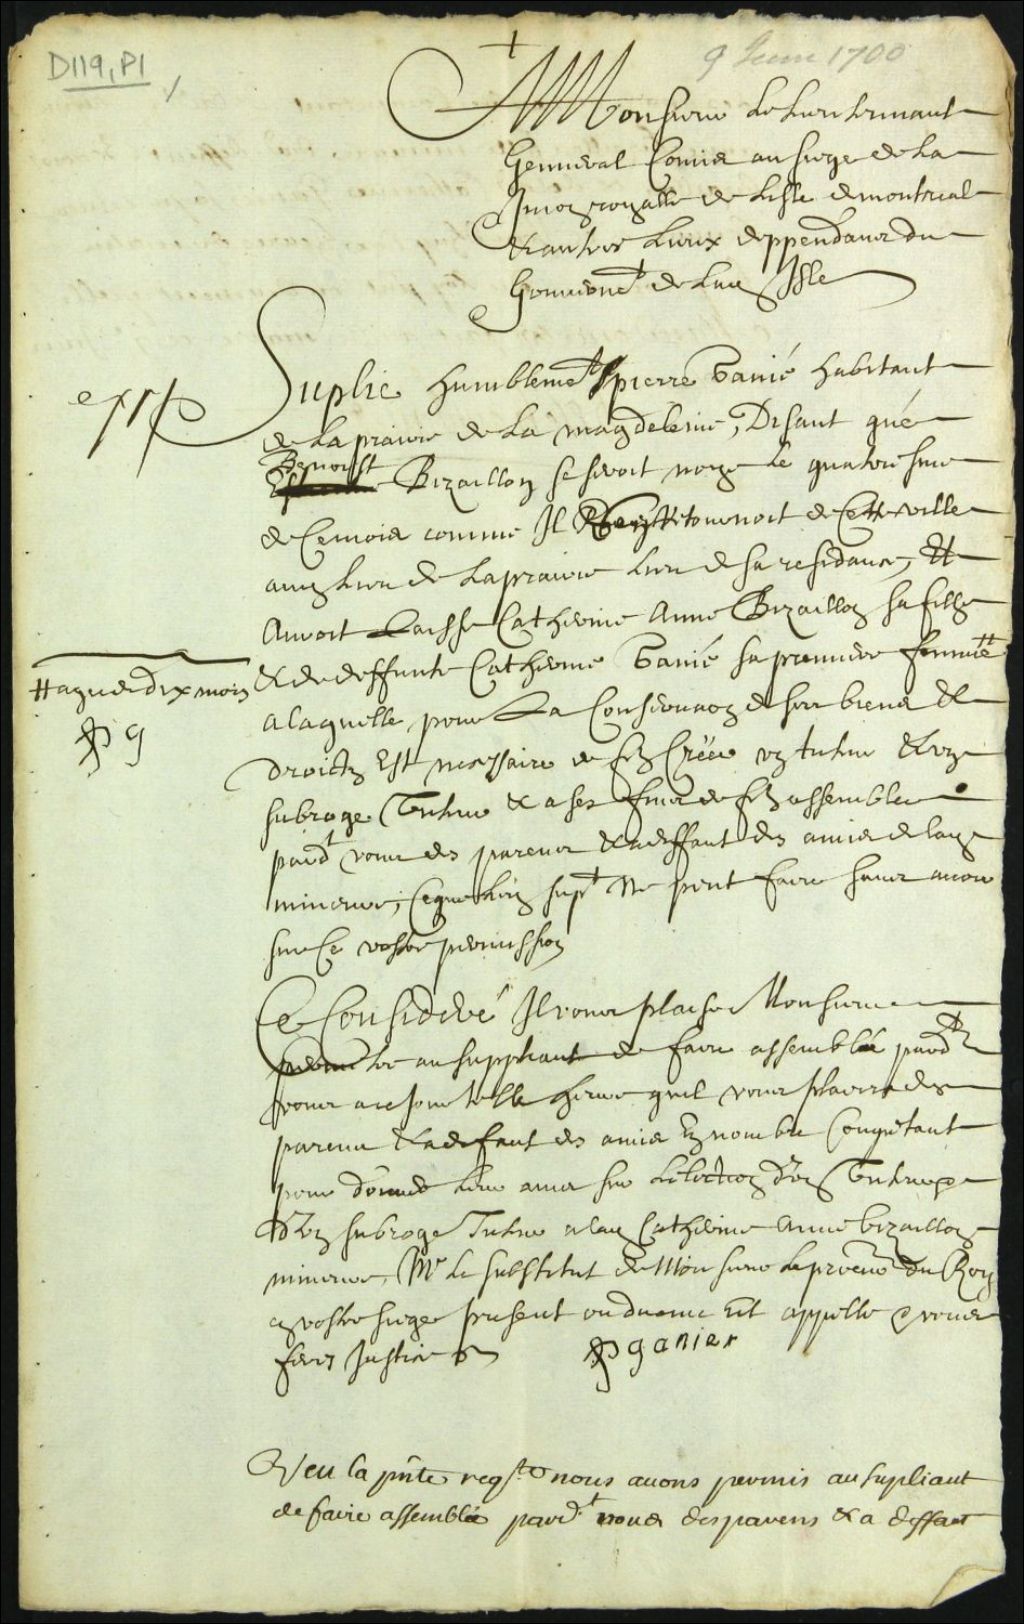 D119, P1
9 Juin 1700
A Monsieur Le Lieutennant
Genneral Commis au siege de La
Jurion royalle de Lisle de montreal
& autres Lieux deppendans du
Gouvernemt de Lad Isle
Suplie humblemt pierre Ganié habitant
de La prairie de La magdeleine, Disant que
Benoist
Bizaillon se seroit noyé Le quatriesme
de Ce mois comme Il sen Retournoit de Cette ville
aud Lieu de Laprairie Lieu de sa residance, Et
Auroit Laissé Catherine Anne Bizaillon sa fille
& de deffunte Catherine Ganié sa premiere femme #
# agee de dix mois
PG
a laquelle pour La Conservaon de ses biens &
droicts Est necessaire de Creer un tuteur & un
subrogé Tuteur & a ses fins de assemblee
pard vous des parens & a deffaut des amis de lad
mineure, Ce que Led supt Ne peut faire sans avoir
sur Ce vostre permission
Ce Consideré Il vous plaise Monsieur
permettre au suppliant de faire assemblée pardt
vous a tel Jour telle heure quil vous plairra des
parens & a defaut des amis En nombre Compettant
pour donner Leur avis sur Lelection d'un Tuteur &
d'Un subrogé Tuteur a lad Catherine Anne bizaillon
mineure, Mr Le substitut de Monsieur Le procureur du Roy
a vostre siege present ou duemt Est appellé & vous
ferez Justice
PGanier
Veu la pnte reqte nous avons permis au supliant
de faire assemblée pardt nous des parens & a deffaut